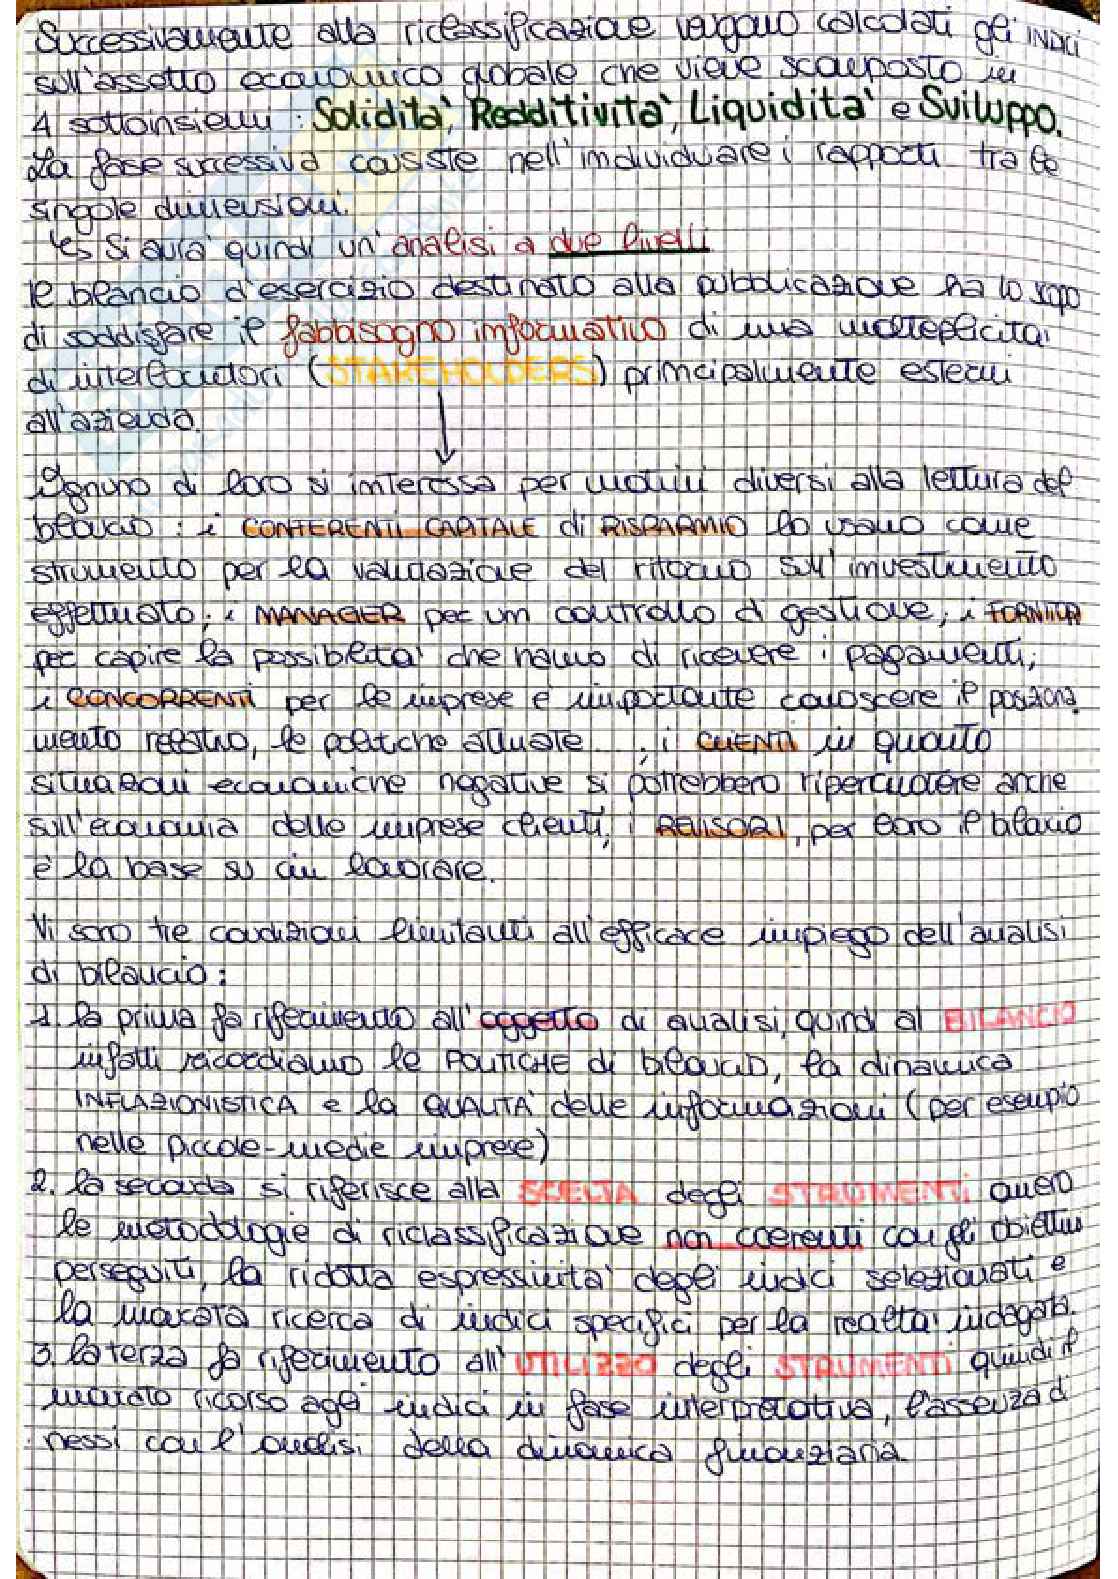 Successivamente alla riclassificazione vengono calcolati gli INDICI
sull'assetto economico globale che viene scomposto in
4 sottoinsiemi : Solidità, Redditività, Liquidità e Sviluppo.
La fase successiva consiste nell'individuare i rapporti tra le
singole dimensioni.
↳ Si avrà quindi un'analisi a due livelli
Il bilancio d'esercizio destinato alla pubblicazione ha lo scopo
di soddisfare il fabbisogno informativo di una molteplicità
di interlocutori (STAKEHOLDERS) principalmente esterni
all'azienda.
Ognuno di loro si interessa per motivi diversi alla lettura del
bilancio : i CONFERENTI CAPITALE di RISPARMIO lo usano come
strumento per la valutazione del ritorno sull'investimento
effettuato; i MANAGER per un controllo di gestione; i FORNITORI
per capire la possibilità che hanno di ricevere i pagamenti;
i CONCORRENTI per le imprese è importante conoscere il posiziona
mento relativo, le politiche attuate...; i CLIENTI in quanto
situazioni economiche negative si potrebbero ripercuotere anche
sull'economia delle imprese clienti; i REVISORI, per loro il bilancio
è la base su cui lavorare.
Vi sono tre condizioni limitanti all'efficace impiego dell'analisi
di bilancio :
1. la prima fa riferimento all'oggetto di analisi, quindi al BILANCIO
infatti ricordiamo le POLITICHE di bilancio, la dinamica
INFLAZIONISTICA e la QUALITÀ delle informazioni (per esempio
nelle piccole-medie imprese)
2. la seconda si riferisce alla SCELTA degli STRUMENTI ovvero
le metodologie di riclassificazione non coerenti con gli obiettivi
perseguiti, la ridotta espressività degli indici selezionati e
la mancata ricerca di indici specifici per la realtà indagata.
3. la terza fa riferimento all'UTILIZZO degli STRUMENTI quindi il
mancato ricorso agli indici in fase interpretativa, l'assenza di
nessi con l'analisi della dinamica finanziaria.